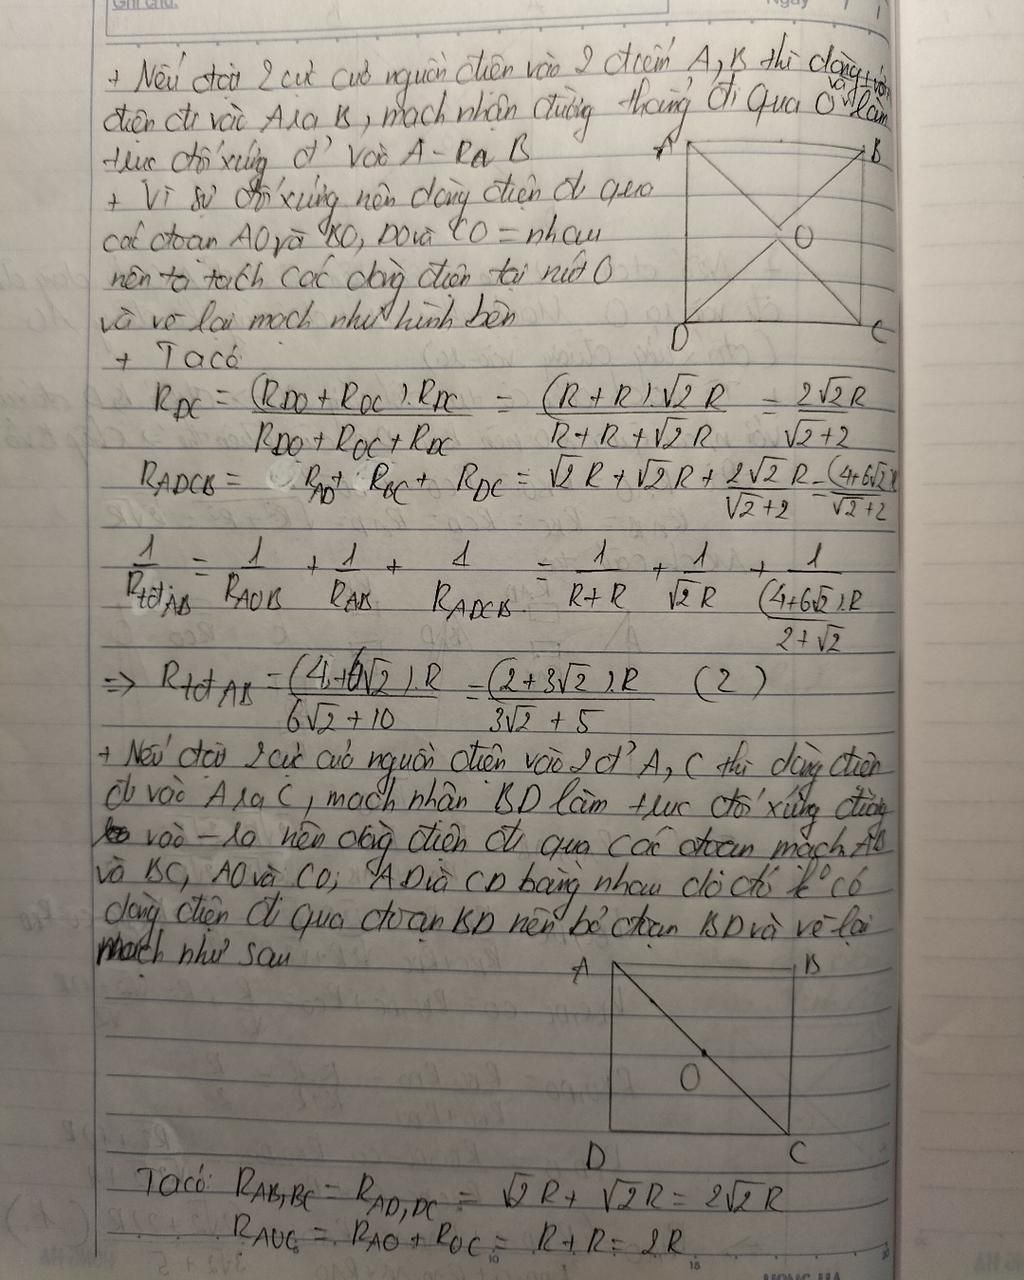 Ghi chú:
Ngày / /
+ Nếu đặt 2 cực của nguồn điện vào 2 điểm A, B thì dòng
điện đi vào A ra B, mạch nhận đường thẳng đi qua O và làm
trục đối xứng đ' vào A - Ra B
A B
+ Vì sự đối xứng nên dòng điện đi qua
các đoạn AO và BO, DO và CO = nhau
O
nên ta tách các dòng điện tại nút O
và vẽ lại mạch như hình bên
D C
+ Ta có
R_DC = (R_DO + R_OC).R_DC / R_DO + R_OC + R_DC = (R + R).√2 R / R + R + √2 R = 2√2 R / √2 + 2
R_ADCB = R_AD + R_BC + R_DC = √2 R + √2 R + 2√2 R / √2 + 2 = (4+6√2)R / √2 + 2
1 / R_tđ AB = 1 / R_AOB + 1 / R_AB + 1 / R_ADCB = 1 / R + R + 1 / √2 R + 1 / (4+6√2).R / 2 + √2
=> R_tđ AB = (4+6√2).R / 6√2 + 10 = (2 + 3√2).R / 3√2 + 5 (2)
+ Nếu đặt 2 cực của nguồn điện vào 2 đ' A, C thì dòng điện
đi vào A ra C, mạch nhận BD làm trục đối xứng
vào - ra nên dòng điện đi qua các đoạn mạch AB
và BC, AO và CO; AD và CD bằng nhau do đó k° có
dòng điện đi qua đoạn BD nên bỏ đoạn BD và vẽ lại
mạch như sau
A B
O
D C
Ta có: R_AB,BC = R_AD,DC = √2 R + √2 R = 2√2 R
R_AOC = R_AO + R_OC = R + R = 2R